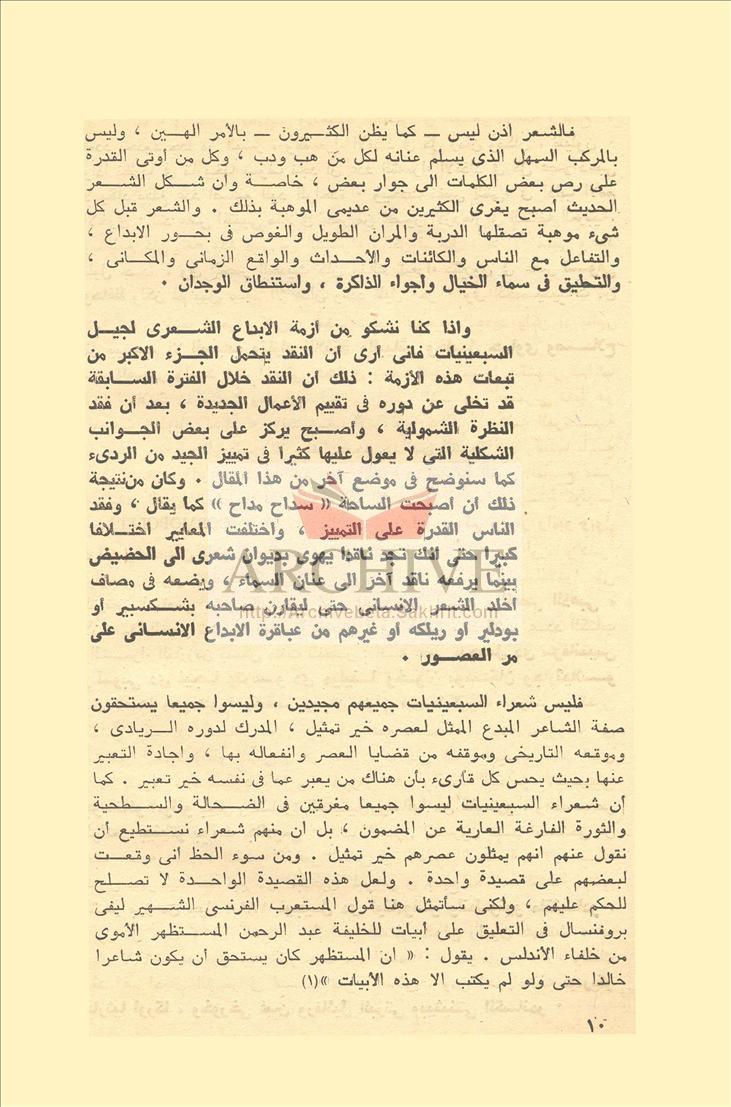 فالشعر اذن ليس — كما يظن الكثيرون — بالأمر الهين ، وليس
بالمركب السهل الذى يسلم عنانه لكل من هب ودب ، وكل من أوتى القدرة
على رص بعض الكلمات الى جوار بعض ، خاصة وان شكل الشعر
الحديث أصبح يغرى الكثيرين من عديمى الموهبة بذلك . والشعر قبل كل
شىء موهبة تصقلها الدربة والمران الطويل والغوص فى بحور الابداع ،
والتفاعل مع الناس والكائنات والأحداث والواقع الزمانى والمكانى ،
والتحليق فى سماء الخيال وأجواء الذاكرة ، واستنطاق الوجدان .
واذا كنا نشكو من أزمة الابداع الشعرى لجيل
السبعينيات فانى أرى أن النقد يتحمل الجزء الأكبر من
تبعات هذه الأزمة : ذلك أن النقد خلال الفترة السابقة
قد تخلى عن دوره فى تقييم الأعمال الجديدة ، بعد أن فقد
النظرة الشمولية ، وأصبح يركز على بعض الجوانب
الشكلية التى لا يعول عليها كثيرا فى تمييز الجيد من الردىء
كما سنوضح فى موضع آخر من هذا المقال . وكان من نتيجة
ذلك أن أصبحت الساحة « سداح مداح » كما يقال ، وفقد
الناس القدرة على التمييز ، واختلفت المعايير اختلافا
كبيرا حتى انك تجد ناقدا يهوى بديوان شعرى الى الحضيض
بينما يرفعه ناقد آخر الى عنان السماء ، ويضعه فى مصاف
أخلد الشعر الانسانى حتى ليقارن صاحبه بشكسبير أو
بودلير أو ريلكه أو غيرهم من عباقرة الابداع الانسانى على
مر العصور .
فليس شعراء السبعينيات جميعهم مجيدين ، وليسوا جميعا يستحقون
صفة الشاعر المبدع الممثل لعصره خير تمثيل ، المدرك لدوره الريادى ،
وموقعه التاريخى وموقفه من قضايا العصر وانفعاله بها ، واجادة التعبير
عنها بحيث يحس كل قارىء بأن هناك من يعبر عما فى نفسه خير تعبير . كما
أن شعراء السبعينيات ليسوا جميعا مغرقين فى الضحالة والسطحية
والثورة الفارغة العارية عن المضمون ، بل ان منهم شعراء نستطيع أن
نقول عنهم انهم يمثلون عصرهم خير تمثيل . ومن سوء الحظ أنى وقعت
لبعضهم على قصيدة واحدة . ولعل هذه القصيدة الواحدة لا تصلح
للحكم عليهم ، ولكنى سأتمثل هنا قول المستعرب الفرنسى الشهير ليفى
بروفنسال فى التعليق على أبيات للخليفة عبد الرحمن المستظهر الأموى
من خلفاء الأندلس . يقول : « ان المستظهر كان يستحق أن يكون شاعرا
خالدا حتى ولو لم يكتب الا هذه الأبيات »(١)
١٠
ARCHIVE
http://Archivebeta.Sakhrit.com